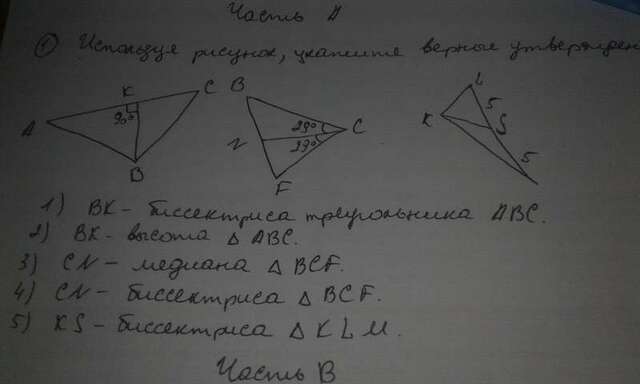 Часть А
1) Используя рисунок, укажите верные утвержден
A K C 90° B
B 29° 29° C N F
L 5 K S 5
1) BK - биссектриса треугольника ABC.
2) BK - высота △ ABC.
3) CN - медиана △ BCF.
4) CN - биссектриса △ BCF.
5) KS - биссектриса △ KLM.
Часть В